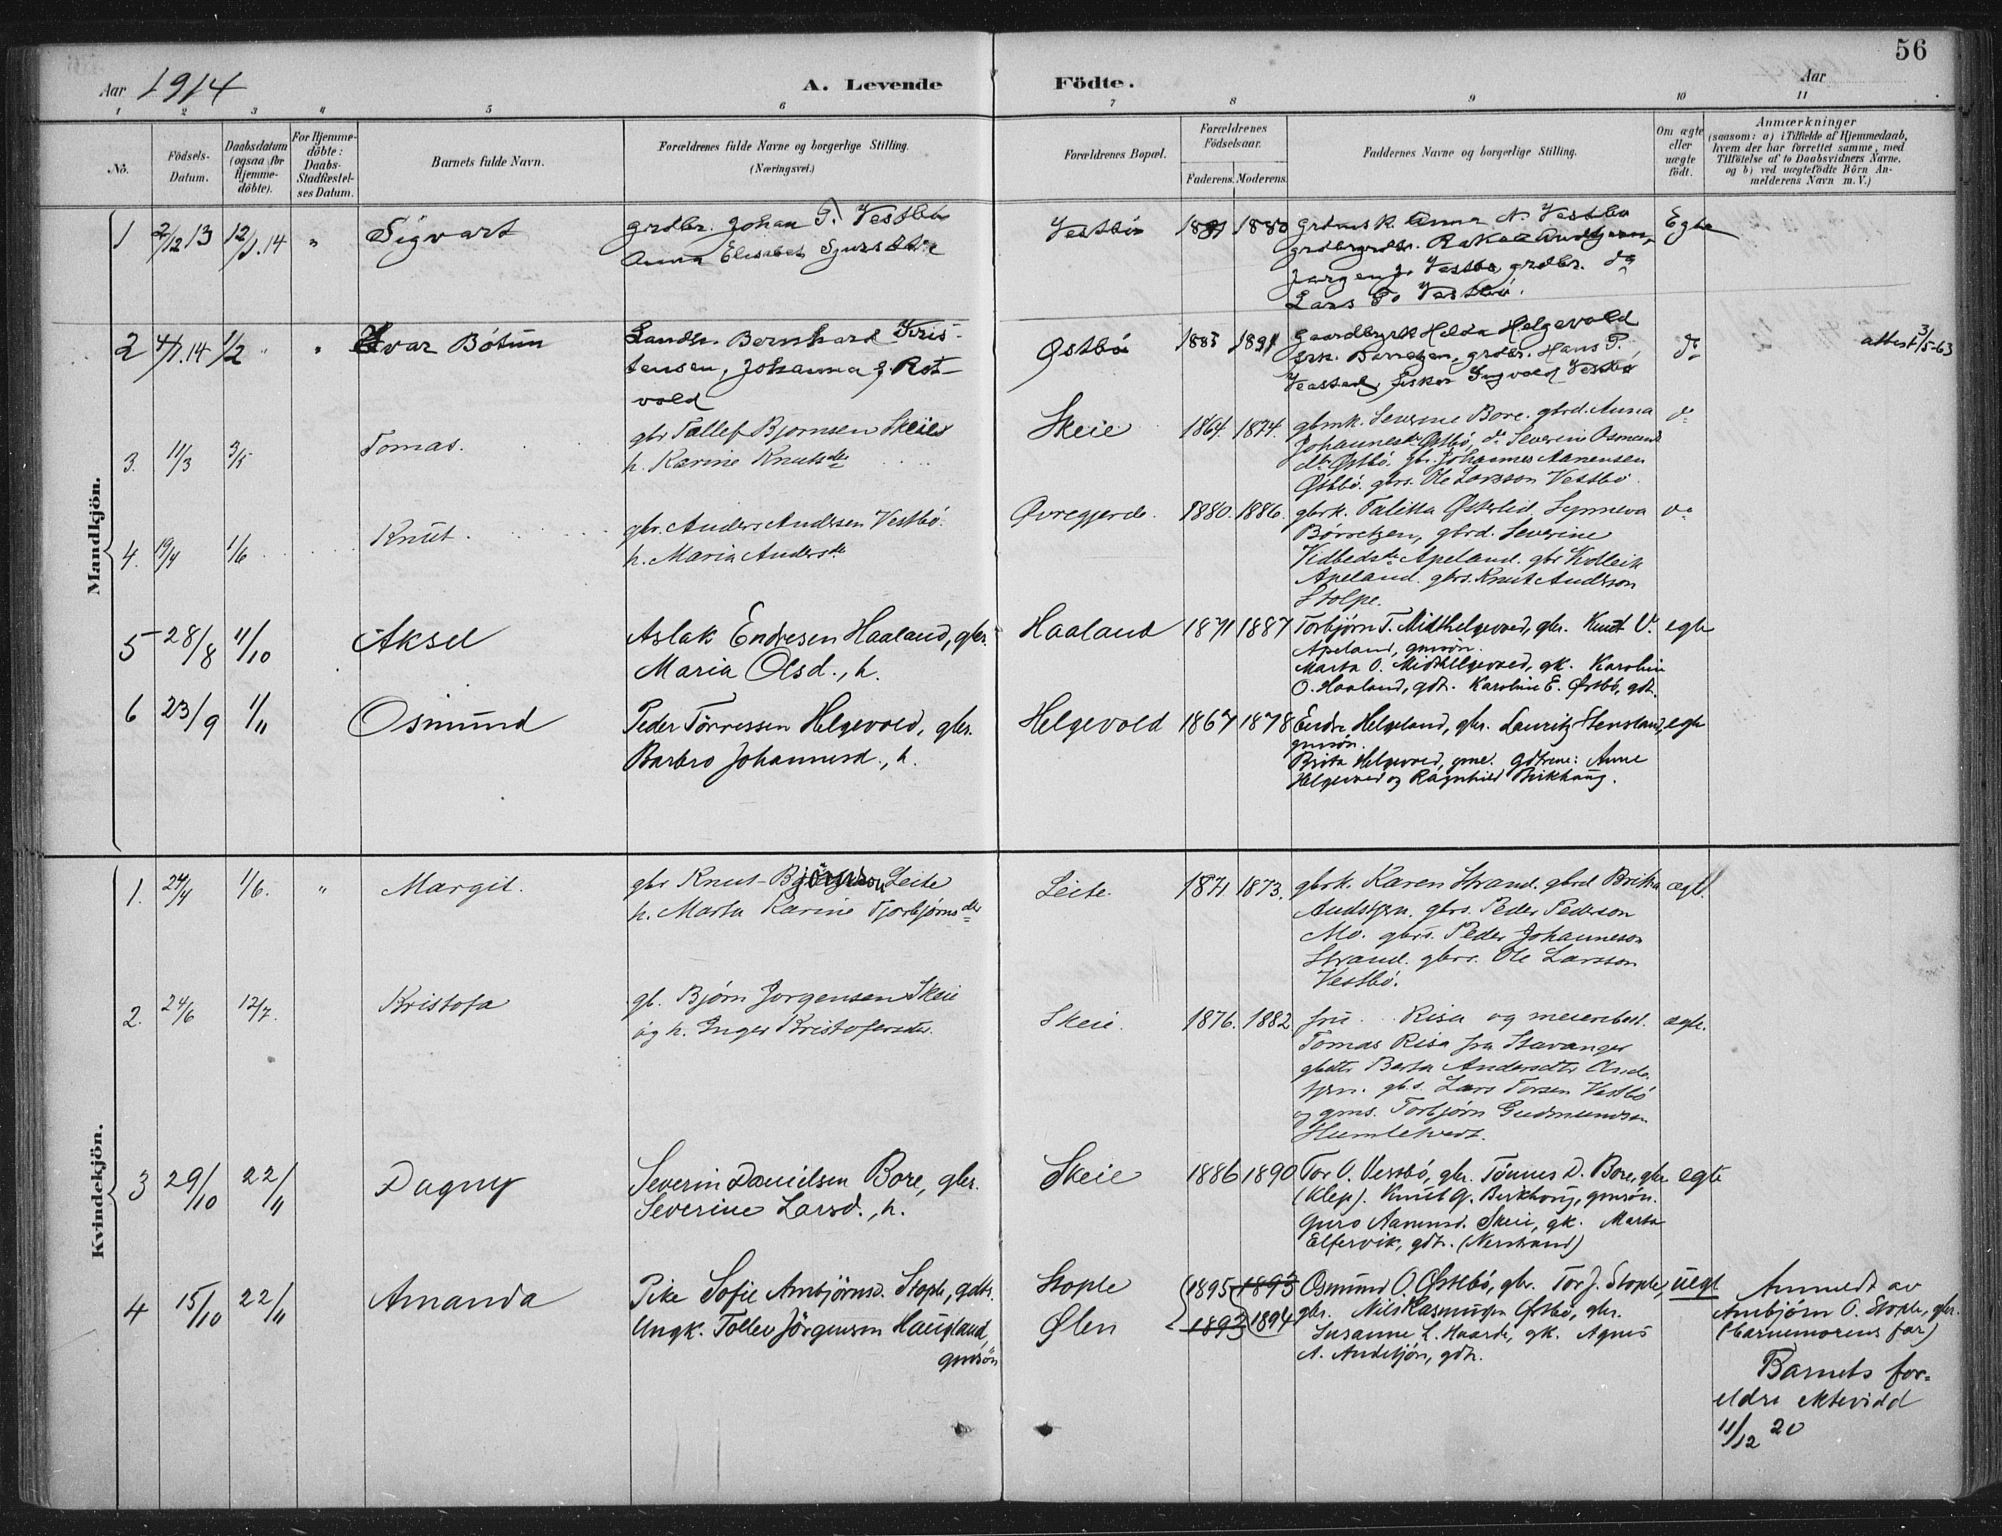 56
Aar 1914
A. Levende Födte.
Aar
1 2 3 4 5 6 7 8 9 10 11
No.
Födsels-Datum.
Daabsdatum (ogsaa for Hjemme-döbte).
For Hjemme-döbte: Daabs-Stadfæstel-ses Datum.
Barnets fulde Navn.
Forældrenes fulde Navne og borgerlige Stilling. (Næringsvei.)
Forældrenes Bopæl.
Forældrenes Födselsaar.
Faderens. Moderens.
Faddernes Navne og borgerlige Stilling.
Om ægte eller uægte födt.
Anmærkninger
(saasom: a) i Tilfælde af Hjemmedaab,
hvem der har forrettet samme, med
Tilföielse af to Daabsvidners Navne.
og b) ved uægtefödte Börn An-
melderens Navn m. V.)
Mandkjön.
1 2/12 13 12/1.14 " Sigvart
grdbr. Johan T. Vestbø
Anna Elisabet
Vestbø 1880
Anna N. Vestbø
Jørgen J. Vestbø grdbr. do
Lars T. Vestbø.
Egte
2 4/1.14 1/2 " " Ivar Bótun
Landh. Bernhard Kris-
tensen, Johanna J. Rot-
vold
Østbø 1885 1891
Helda Helgevold
Børretzen, grdbr. Hans P.
Ingvald Vestbø
do
attest 3/5-63
3. 11/3 3/5 Tomas.
gbr Tallef Bjørnsen Skeie
h. Karine Knutsdtr
Skeie 1864. 1874.
gbmk. Severine Bore. gbrd. Anna
Johannesdtr Østbø, do Severine Osmund
dtr Østbø. gbr. Johannes Aanensen
Østbø. gbrs. Ole Larsson Vestbø.
do
4. 19/4 1/6 Knut.
gbr. Anders Andersen Vestbø.
h. Maria Andersdtr
Øvregjerde. 1880. 1886.
gbrk. Talitta Østerlid. Synneva
Børretzen, gbrd. Severine
Vidledsdtr Apeland. gbr Vidleik
Apeland. gbrs. Knut Anderson
Stolpe.
do
5 28/8 11/10 Aksel
Aslak Endresen Haaland, gbr.
Maria Olsd., h.
Haaland 1871 1887
Torbjørn T. Midthelgevold, gbr. Knut V.
Apeland, gmsøn.
Marta O. Midthelgevold, gk. Karoline
O. Haaland, gdt. Karoline E. Østbø, gdt.
egte
6 23/9 1/11 Osmund
Peder Tørressen Helgevold, gbr.
Barbro Johannesd., h.
Helgevold 1867 1878
Endre Helgeland, gbr. Lauritz Stensland,
gmsøn.
Brita Helgevold, gme. Gdtrene: Anne
Helgevold og Ragnhild Birkhaug.
egte
Kvindekjön.
1. 24/4 1/6. " Margit.
gbr Knut Bjørnson Leite
h. Marta Karine Torbjørnsdtr
Leite. 1871 1873.
gbrk. Karen Strand. gbrd Britha
Audstjern. gbrs. Peder Pederson
Mo. gbrs. Peder Johanneson
Strand. gbrs. Ole Larsson
Vestbø.
ægte.
2. 24/6 12/7. Kristofa
gb. Bjørn Jørgensen Skeie
og h. Inger Kristofersdtr.
Skeie. 1876. 1882
fru Risa og meieribest.
Tomas Risa fra Stavanger
gbdtr Berta Andersdtr Aud-
tjern. gbs. Lars Torsen Vestbø
og gms. Torbjørn Gudmundsen
Humlekvedt.
ægte.
3 29/10 22/11 Dagny
Severin Danielsen Bore, gbr.
Severine Larsd., h.
Skeie 1886 1890
Tor O. Vestbø, gbr. Tønnes D. Bore, gbr
(Klep). Knut G. Birkhaug, gmsøn.
Guro Aamund. Skeie, gk. Marta
Elfervik, gdt. (Nerstrand)
egte
4 15/10 22/11 Amanda
Pike Sofie Ambjørnsd. Stople, gdtr.
Ungk. Tollev Jörgensen Haugland,
gmsøn
Stople
Ølen
1895 1893
1892 1894
Osmund O. Østebø, gbr. Tor J. Stople,
gbr. Nils Rasmussen Østbø, gbr.
Susanne L. Haarde, gk. Agnes
A. Audestjøn, gdt.
uegt
Anmeldt av
Ambjørn O. Stople, gbr.
(barnemorens far)
Barnets for-
eldre ektevidd
11/12 20